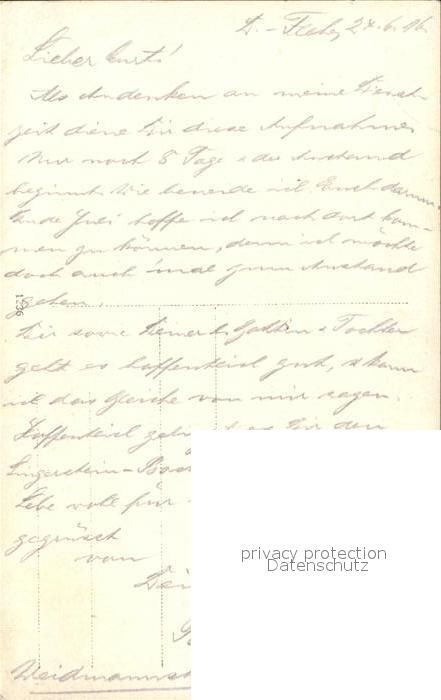 24.6.16
Lieber Curt!
Als Andenken an meine Dienst-
zeit diene Dir diese Aufnahme.
Nur noch 8 Tage u. der Anstand
beginnt. Wie beneide ich Euch darum.
Ende Juli hoffe ich nach dort kom-
men zu können, denn ich möchte
doch auch 'mal zum Anstand
gehen.
1236
Dir sowie Deiner l. Gattin u. Tochter
geht es hoffentlich gut, u. kann
ich das Gleiche von mir sagen.
Hoffentlich es Dir den
Lebe wohl für
gegrüsst
von
Dein
Weidmanns
privacy protection
Datenschutz